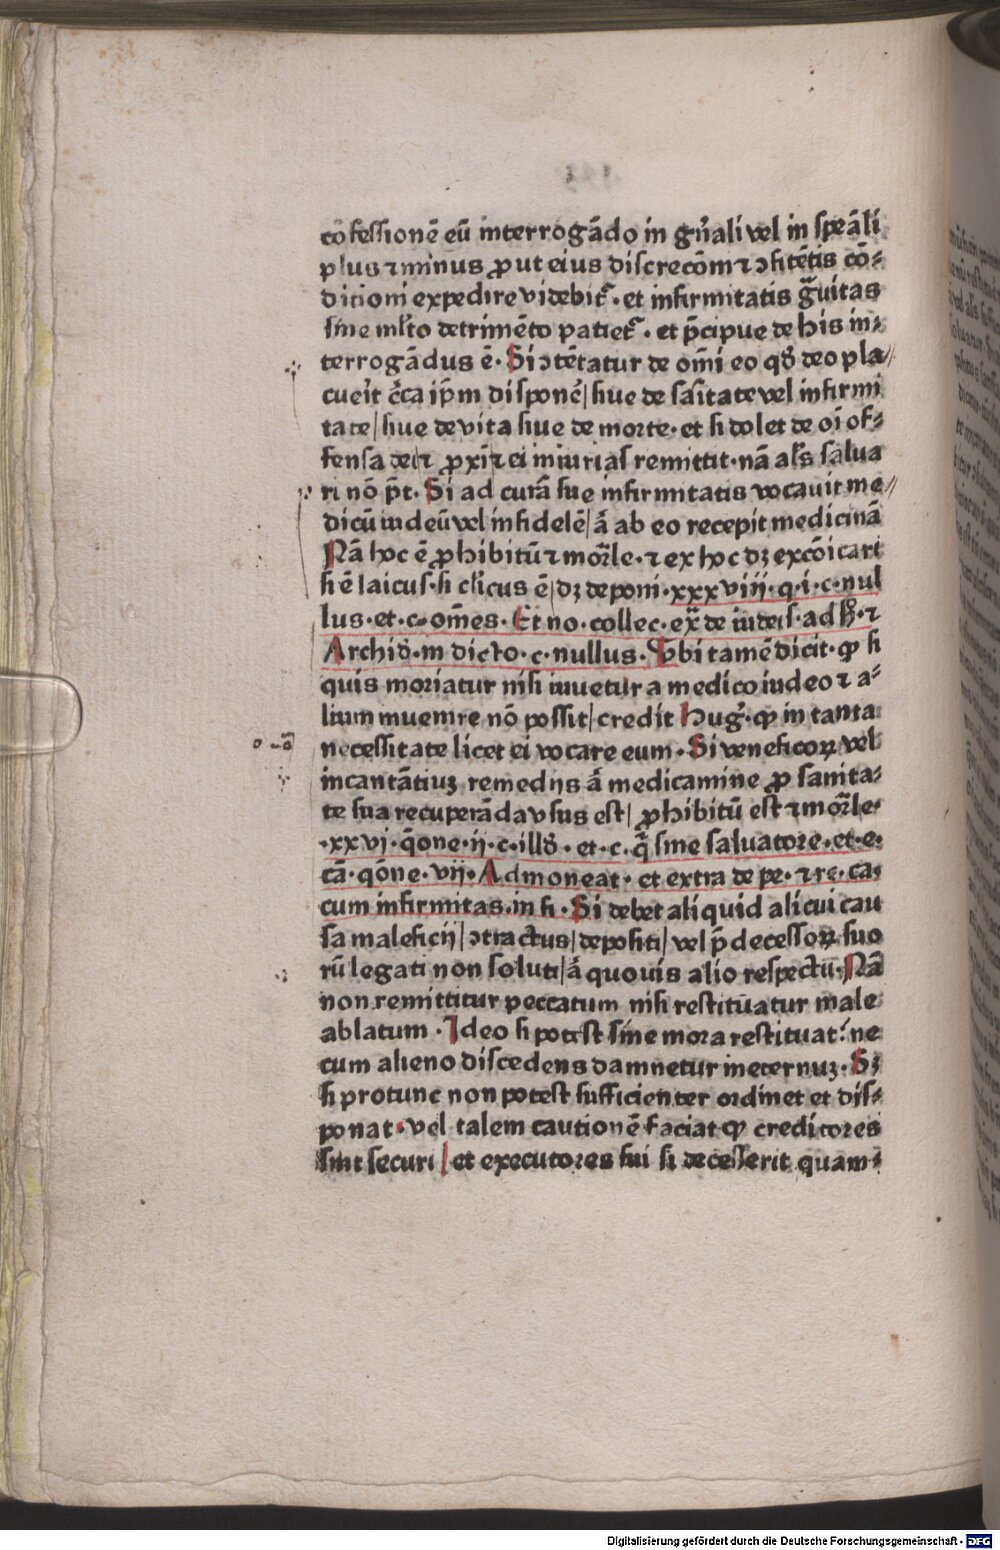 cōfessionē eū interrogādo in gn̄ali vel in speāli
plus ⁊ minus ꝓut eius discrecōm ⁊ ↄfitētis cō⸗
ditioni expedire videbit᷑ · et infirmitatis gͣuitas
sine ml̓to detrimēto patiet᷑ · et p̄cipue de his in⸗
terrogādus ē · Si ↄtētatur de om̄i eo qd̓ deo pla//
cuei̓t c̄ca ip̄m disponē | siue de sāitate vel infirmi
tate | siue de vita siue de morte · et si dolet de oī of⸗
fensa dei ⁊ ꝓxīi ⁊ ei iniurias remittit · nā al̓s salua
ri nō p̄t · Si ad curā sue infirmitatis vocauit me//
dicū iudeū vel infidelē | ā ab eo recepit medicinā
Nā hoc ē ꝓhibitū ⁊ mor̄le · ⁊ ex hoc dꝫ excōicari
si ē laicus · si cl̓icus ē | dꝫ deponi · xxxviij · q · i · c · nul
lus · et · c · om̄es · Et no · collec · exͣ de iudeis · ad hͦ · ⁊
Archid̓ · in dicto · c · nullus · Vbi tamē dicit · ꝙ si
quis moriatur nisi iuuetur a medico iudeo ⁊ a⸗
lium inuenire nō possit | credit Hug̓ · ꝙ in tanta
necessitate licet ei vocare eum · Si veneficoꝝ vel
incantātiuꝫ remedijs ā medicamine ꝓ sanita⸗
te sua recuperāda vsus est | ꝓhibitū est ⁊ mor̄le ·
· xxvj · qōne · ij · c · illd̓ · et · c · qͣ sine saluatore · et · e ·
cā · qōne · vij · Admoneat · et extra de pe · ⁊ re · ca ·
cum infirmitas · in fi · Si debet aliquid alicui cau
sa maleficij | ↄtractus | depositi | vel p̄decessoꝝ suo
rū legati non soluti | ā quouis alio respectu · Nā
non remittitur peccatum nisi restituatur male
ablatum · Ideo si potest sine mora restituat : ne
cum alieno discedens damnetur ineternuꝫ · Sꝫ
si protunc non potest sufficienter ordinet et dis⸗
ponat · vel talem cautionē faciat ꝙ creditores
sint securi | et executores sui si decesserit quam⸗
Digitalisierung gefördert durch die Deutsche Forschungsgemeinschaft · DFG